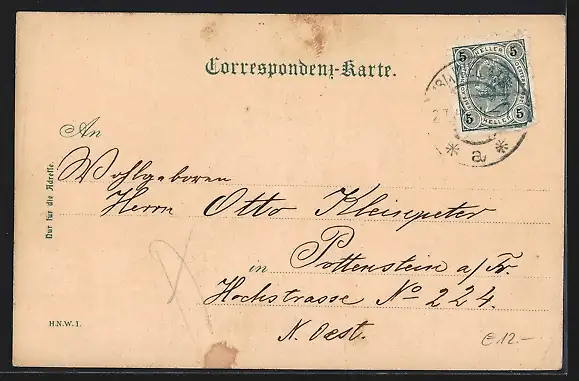 Correspondenz-Karte.
5 HELLER 5
5 HELLER 5
* a *
An
Wohlgeboren
Herrn Otto Kleinpeter
in Pottenstein a/Tr.
Hochstrasse No 224.
N. Oest.
Nur für die Adresse.
H.N.W. I.
€ 12.-